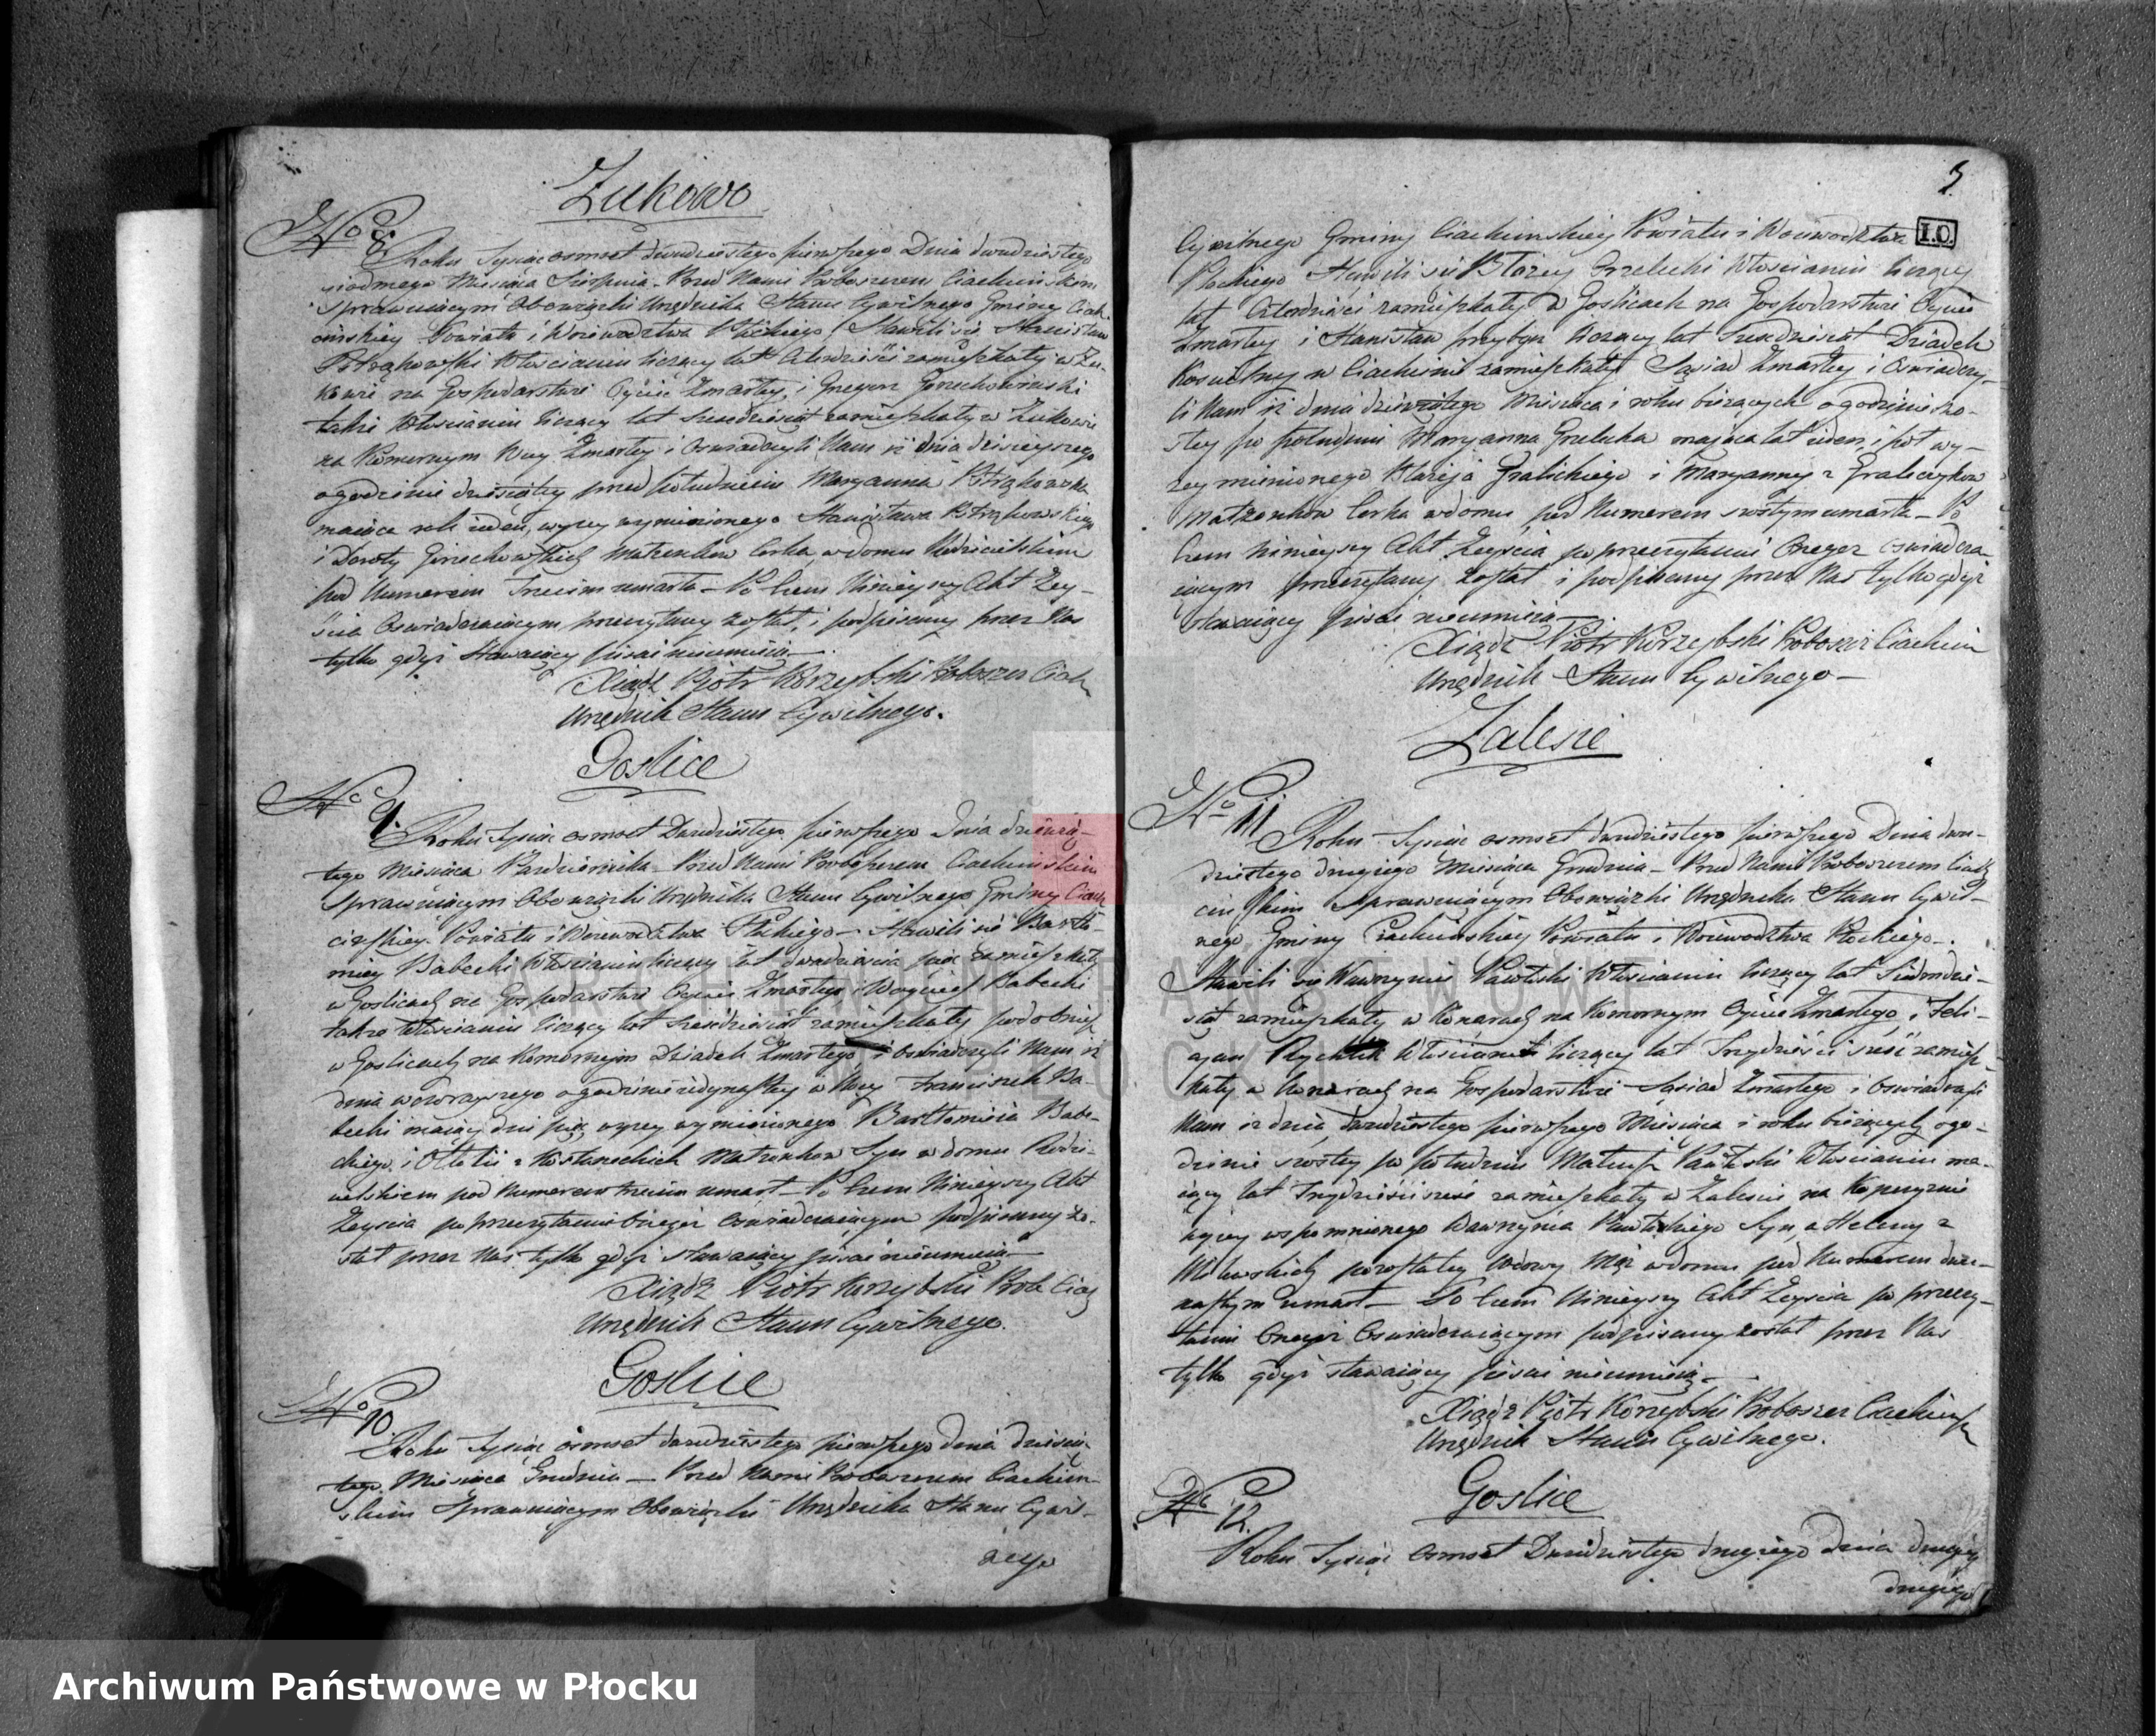 Zukowo
No 8.
Roku Tysiąc osmset dwudziestego pierwszego Dnia dwudziestego
siódmego Miesiąca Sierpnia - Przed Nami Proboszczem Ciachcinskim
Sprawuiącym Obowiązki Urzędnika Stanu Cywilnego Gminy Ciach-
cinskiey Powiatu i Woiewodztwa Płockiego Stawili się Stanisław
Włościanin liczący lat czterdzieści zamieszkały w Zu-
kowie na Gospodarstwie Oyciec Zmarłey, i Grzegorz
także Włościanin liczący lat sześćdziesiąt zamieszkały w Zukowie
na Komornym Zmarłey i Oswiadczyli Nam iż dnia dzisieyszego
o godzinie dziesiątey przed południem Maryanna
maiąca rok ieden, wyzey wymienionego Stanisława
i Doroty Małżonków Corka, w domu Rodzicielskim
pod Numerem Trzecim umarła - Po czem Ninieyszy Akt Zey-
ścia Oswiadczaiącym przeczytany został, i podpisany przez Nas
tylko gdyż Stawaiący pisać nieumieią
Xiądz Piotr Korzybski Proboszcz Ciach
Urzędnik Stanu Cywilnego.
Goslice
No 9.
Roku Tysiąc osmset Dwudziestego pierwszego Dnia dziewią-
tego Miesiąca Pazdziernika - Przed Nami Proboszczem Ciachcinskim
Sprawuiącym Obowiązki Urzędnika Stanu Cywilnego Gminy Ciach
cinskiey Powiatu i Woiewodztwa Płockiego - Stawili się Bartło-
miey Babecki Włościanin liczący lat dwadzieścia pięć zamieszkały
w Goslicach na Gospodarstwie Oyciec Zmarłego i Woyciech Babecki
także Włościanin liczący lat sześćdziesiąt zamieszkały podobnież
w Goslicach na Komornym Dziadek Zmarłego i Oswiadczyli Nam iż
dnia wczorayszego o godzinie iedynastey w Nocy Franciszek Ba-
becki maiący dni pięć wyzey wymienionego Bartłomieia Babe-
ckiego i Małżonków Syn w domu Rodzi-
cielskiem pod Numerem trzecim umarł - Po czem Ninieyszy Akt
Zeyscia po przeczytaniu onegoż Oswiadczaiącym podpisany zo-
stał przez Nas tylko gdyż stawaiący pisać nieumieią
Xiądz Piotr Korzybski Prob Ciach
Urzędnik Stanu Cywilnego.
Goslice
No 10.
Roku Tysiąc osmset dwudziestego pierwszego dnia dziesią-
tego Miesiąca Grudnia - Przed Nami Proboszczem Ciachcin-
skim Sprawuiącym Obowiązki Urzędnika Stanu Cywil-
nego
5
I.O.
Cywilnego Gminy Ciachcinskiey Powiatu i Woiewodztwa
Płockiego Stawili się Błażey Grelecki Włościanin liczący
lat czterdzieści zamieszkały w Goslicach na Gospodarstwie Oyciec
Zmarłey i Stanisław liczący lat sześćdziesiąt Dziadek
Koscielny w Ciachcinie zamieszkały Sąsiad Zmarłey i Oswiadczy-
li Nam iż dnia dziewiątego Miesiąca i roku bieżących o godzinie szo-
stey po południu Maryanna Grelecka maiąca lat ieden i pół wy-
zey mienionego Błażeia i Maryanny z
Małżonków Corka w domu pod Numerem szóstym umarła - Po
czem Ninieyszy Akt Zeyscia po przeczytaniu Onegoz Oswiadcza-
iącym przeczytany został i podpisany przez Nas tylko gdyż
stawaiący pisać nieumieią
Xiądz Piotr Korzybski Proboszcz Ciachcin
Urzędnik Stanu Cywilnego -
Zalesie
No 11
Roku Tysiąc osmset dwudziestego pierwszego Dnia dwu-
dziestego drugiego Miesiąca Grudnia - Przed Nami Proboszczem Ciach
cinskim Sprawuiącym Obowiązki Urzędnika Stanu Cywil-
nego Gminy Ciachcinskiey Powiatu i Woiewodztwa Płockiego -
Stawili się Wawrzyniec Pawłoski Włościanin liczący lat Siedmdzie-
siąt zamieszkały w Konarach na Komornym Oyciec Zmarłego, i Feli-
cyan Włościanin liczący lat Trzydzieści sześć zamiesz-
kały w Konarach na Gospodarstwie Sąsiad Zmarłego i Oswiadczyli
Nam iż dnia dwudziestego pierwszego Miesiąca i roku bieżących o go-
dzinie szóstey po południu Mateusz Pawłoski Włościanin ma-
iący lat Trzydzieści sześć zamieszkały w Zalesiu na
wyzey wspomnionego Wawrzynca Pawłoskiego Syn, a Heleny z
pozostałey Wdowy Mąż w domu pod Numerem dwu-
nastym umarł - Po czem Ninieyszy Akt Zeyscia po przeczy-
taniu Onegoż Oswiadczaiącym podpisany został przez Nas
tylko gdyż stawaiący pisać nieumieią -
Xiądz Piotr Korzybski Proboszcz Ciachcinsk
Urzędnik Stanu Cywilnego.
Goslice
No 12.
Roku Tysiąc osmset Dwudziestego drugiego Dnia
drugiego
ARCHIWUM PAŃSTWOWE
W PŁOCKU
Archiwum Państwowe w Płocku